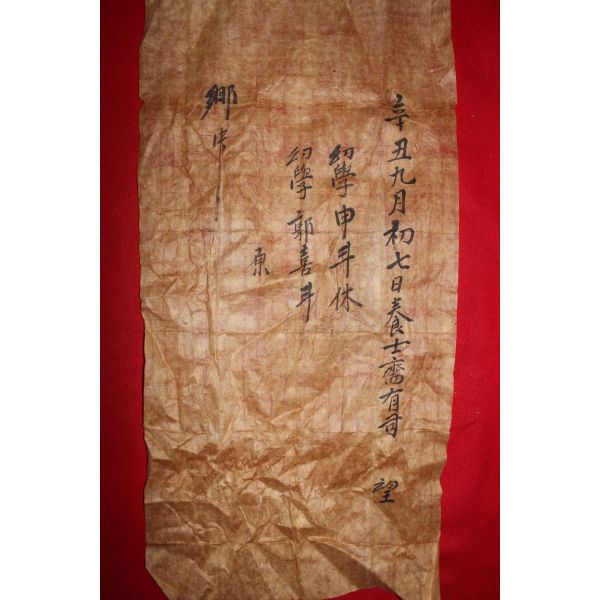 辛丑九月初七日養士齋有司 望
幼學 申 休
幼學 郭喜
原
鄕中